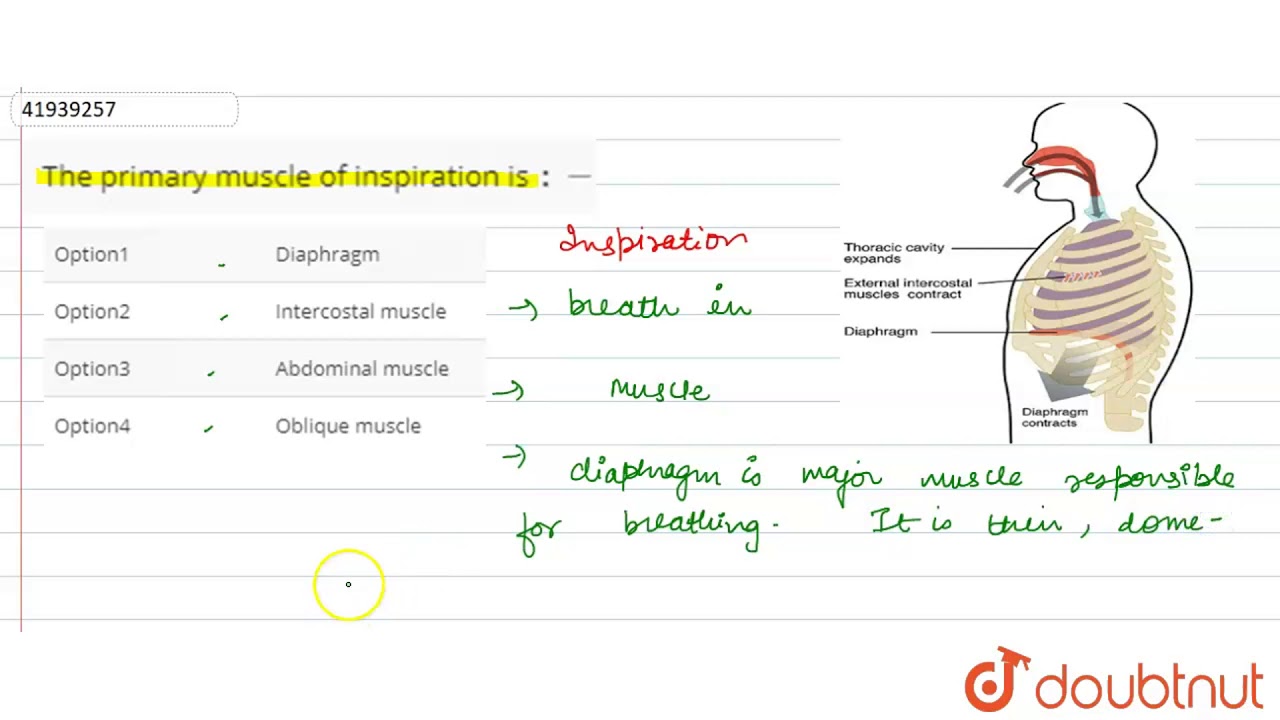 41939257
The primary muscle of inspiration is :
Option1 Diaphragm
Option2 Intercostal muscle
Option3 Abdominal muscle
Option4 Oblique muscle
Inspiration
→ breath in
→ Muscle
→ diaphragm is major muscle responsible
for breathing. It is thin, dome-
Thoracic cavity
expands
External intercostal
muscles contract
Diaphragm
Diaphragm
contracts
doubtnut